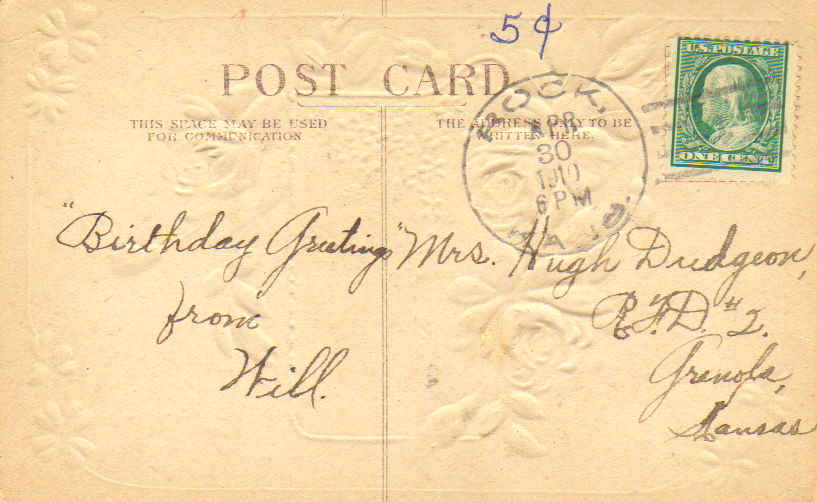 5¢
U.S. POSTAGE
ONE CENT
POST CARD
THIS SPACE MAY BE USED
FOR COMMUNICATION
THE ADDRESS ONLY TO BE
WRITTEN HERE.
ROCK,
30
6 PM
"Birthday Greetings"
from
Will.
Mrs. Hugh Dudgeon,
R.F.D. "2.
Grenola,
Kansas